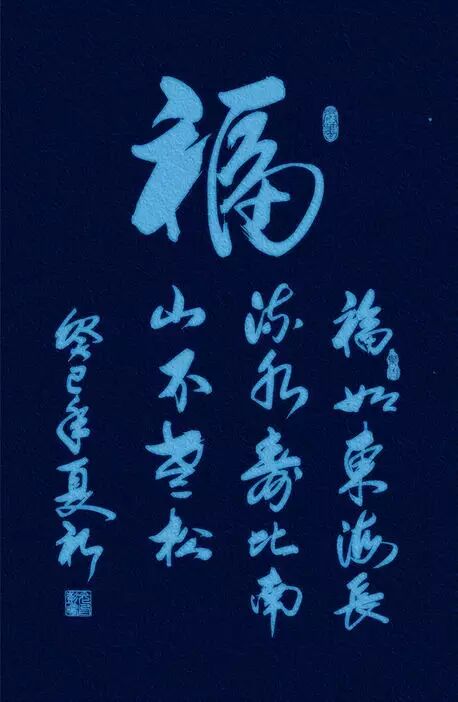 福
福如東海長
流水壽比南
山不老松
癸巳年夏新